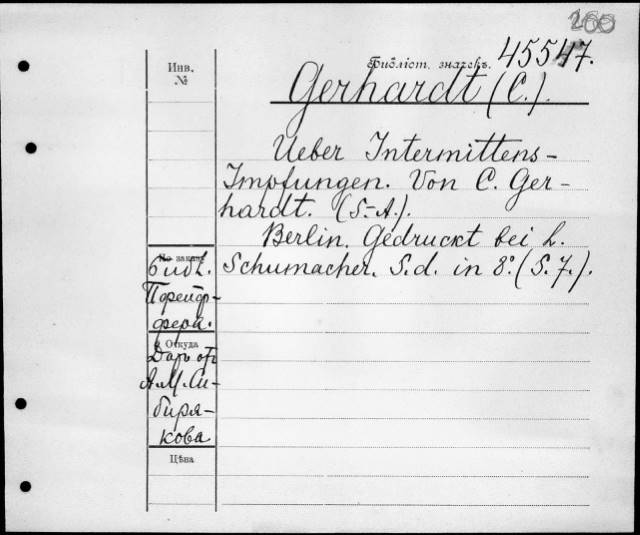 200
Инв. №
Библіот. значекъ. 45547.
Gerhardt (C.).
Ueber Intermittens-
Impfungen. Von C. Ger-
hardt. (S.-A.).
Berlin. Gedruckt bei L.
Schumacher. S.d. in 8°. (S. 7.).
По заказу
библ.
Порейф-
фера.
Откуда
Даръ отъ
А.М. Си-
биря-
кова
Цѣна